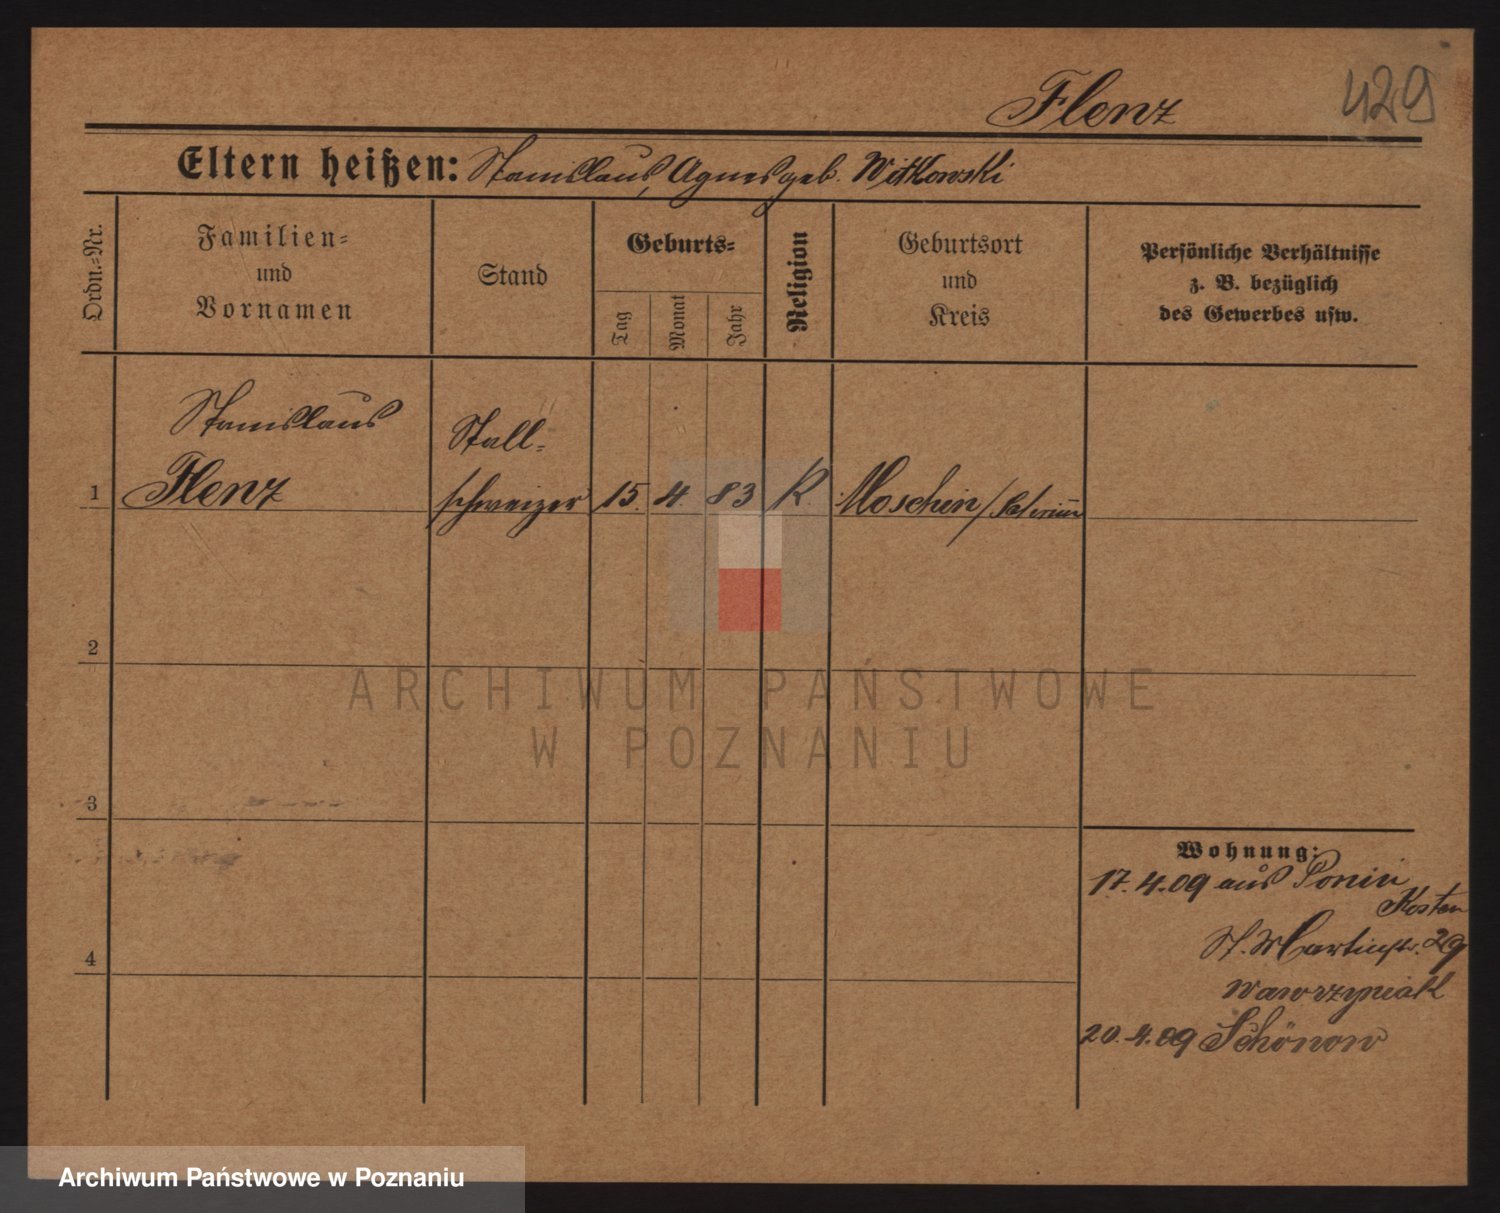 Flenz
429
Eltern heißen: Stanislaus, Agnes geb. Witkowski
Ordn.-Nr.
Familien-
und
Vornamen
Stand
Geburts-
Tag
Monat
Jahr
Religion
Geburtsort
und
Kreis
Persönliche Verhältnisse
z. B. bezüglich
des Gewerbes usw.
Stanislaus
Stall-
1 Flenz schweizer 15. 4. 83 K. Moschin/Schrimm
2
ARCHIWUM PAŃSTWOWE
W POZNANIU
3
Wohnung:
17. 4. 09 aus Ponin
Kosten
St. Martinstr. 29
4
Wawrzyniak
20. 4. 09 Schönow
Archiwum Państwowe w Poznaniu